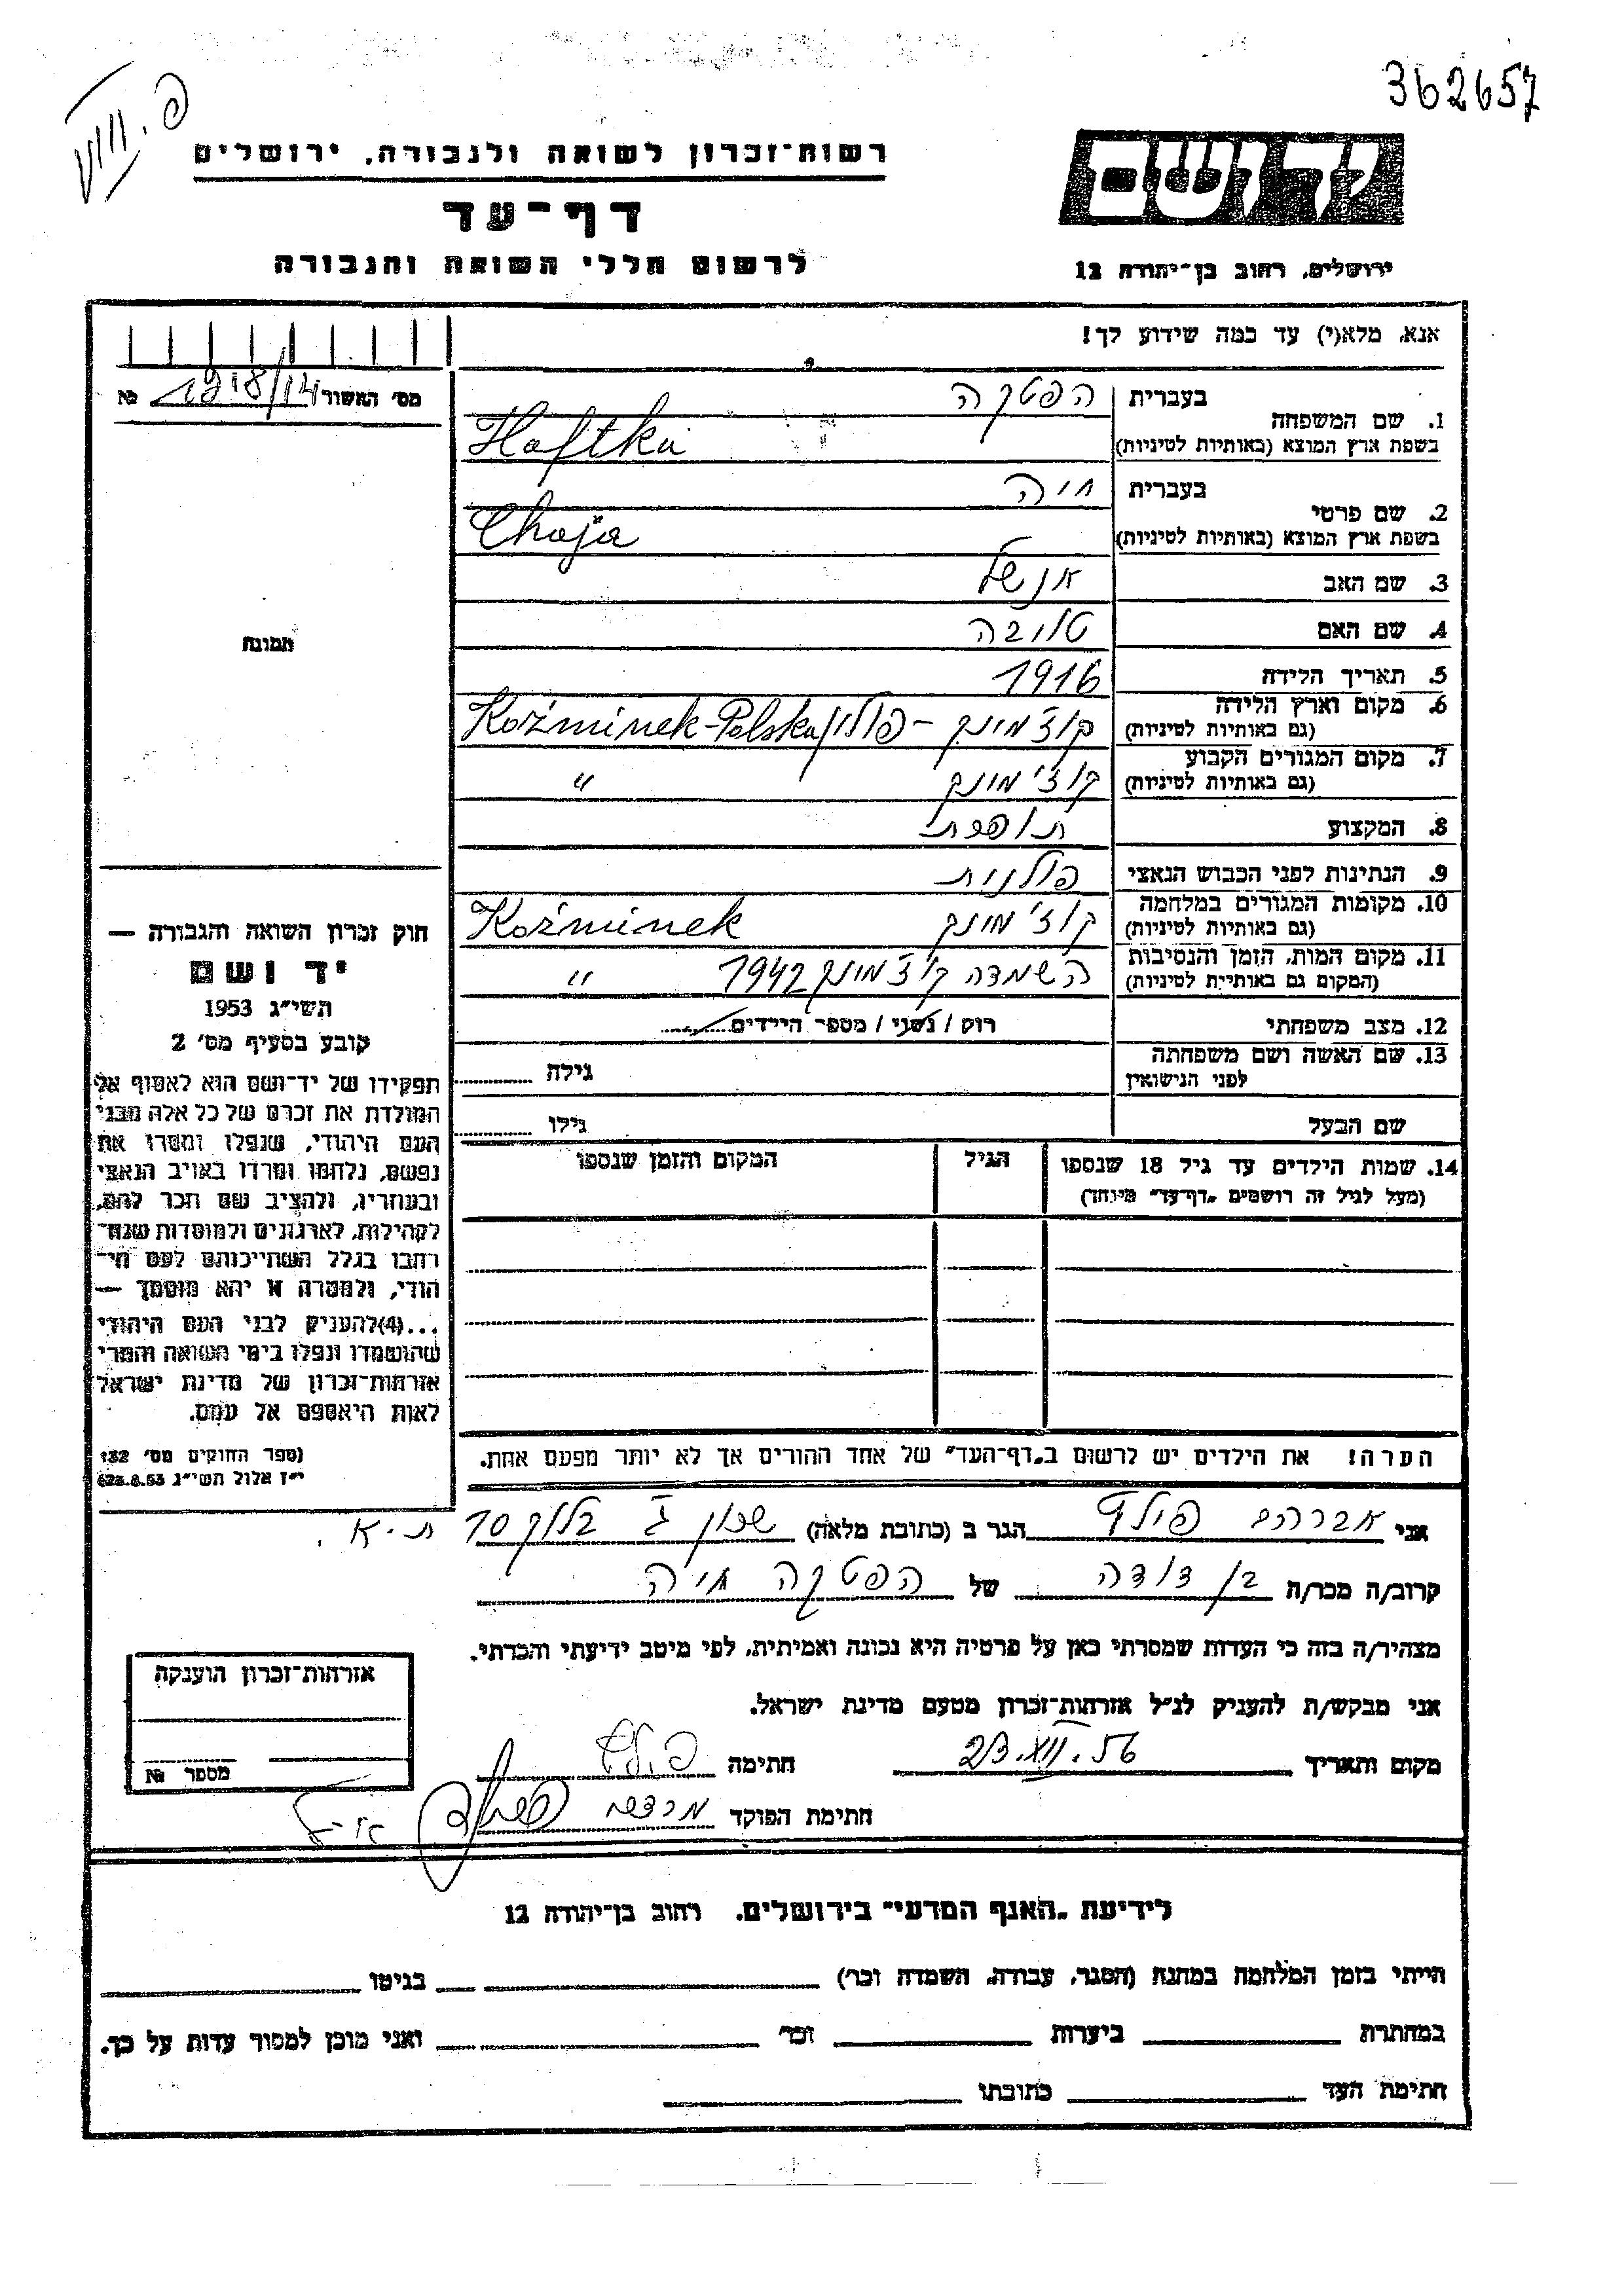 362657
VIII. פ
יד ושם
רשות־זכרון לשואה ולגבורה, ירושלים
דף־עד
לרשום חללי השואה והגבורה
ירושלים, רחוב בן־יהודה 12
אנא, מלא(י) עד כמה שידוע לך!
מס׳ האשור 1918/14 №
בעברית הפטקה
1. שם המשפחה
בשפת ארץ המוצא (באותיות לטיניות) Haftka
בעברית חיה
2. שם פרטי
בשפת ארץ המוצא (באותיות לטיניות) Chaja
3. שם האב אנשל
4. שם האם טובה
5. תאריך הלידה 1916
6. מקום וארץ הלידה
(גם באותיות לטיניות) קוז׳מינק – פולין Koźminek-Polska
7. מקום המגורים הקבוע
(גם באותיות לטיניות) קוז׳מינק "
8. המקצוע תופרת
9. הנתינות לפני הכבוש הנאצי פולנית
10. מקומות המגורים במלחמה
(גם באותיות לטיניות) קוז׳מינק Koźminek
11. מקום המות, הזמן והנסיבות
(המקום גם באותיות לטיניות) השמדה קוז׳מינק 1942 "
12. מצב משפחתי רוק / נשוי / מספר הילדים
13. שם האשה ושם משפחתה
לפני הנישואין גילה
שם הבעל גילו
14. שמות הילדים עד גיל 18 שנספו הגיל המקום והזמן שנספו
(מעל לגיל זה רושמים „דף־עד״ מיוחד)
תמונה
חוק זכרון השואה והגבורה —
יד ושם
תשי״ג 1953
קובע בסעיף מס׳ 2
תפקידו של יד־ושם הוא לאסוף אל
המולדת את זכרם של כל אלה מבני
העם היהודי, שנפלו ומסרו את
נפשם, נלחמו ומרדו באויב הנאצי
ובעוזריו, ולהציב שם וזכר להם,
לקהילות, לארגונים ולמוסדות שנח־
רבו בגלל השתייכותם לעם הי־
הודי, ולמטרה זו יהא מוסמך —
...(4)להעניק לבני העם היהודי
שהושמדו ונפלו בימי השואה והמרי
אזרחות־זכרון של מדינת ישראל
לאות היאספם אל עמם.
(ספר החוקים מס׳ 132
י״ז אלול תשי״ג 28.8.53)
הערה! את הילדים יש לרשום ב„דף־העד״ של אחד ההורים אך לא יותר מפעם אחת.
אני אברהם פולק הגר ב (כתובת מלאה) שכון ג׳ בלוק 10 ת.א.
קרוב/ה מכר/ה בן דודה של הפטקה חיה
מצהיר/ה בזה כי העדות שמסרתי כאן על פרטיה היא נכונה ואמיתית, לפי מיטב ידיעתי והכרתי.
אני מבקש/ת להעניק לנ״ל אזרחות־זכרון מטעם מדינת ישראל.
מקום ותאריך 23.VII.56 חתימה פולק
חתימת הפוקד מרדכי
אזרחות־זכרון הוענקה
מספר №
לידיעת „האגף המדעי״ בירושלים, רחוב בן־יהודה 12
הייתי בזמן המלחמה במחנה (הסגר, עבודה, השמדה וכו׳) בגיטו
במחתרת ביערות וכו׳ ואני מוכן למסור עדות על כך.
חתימת העד כתובתו